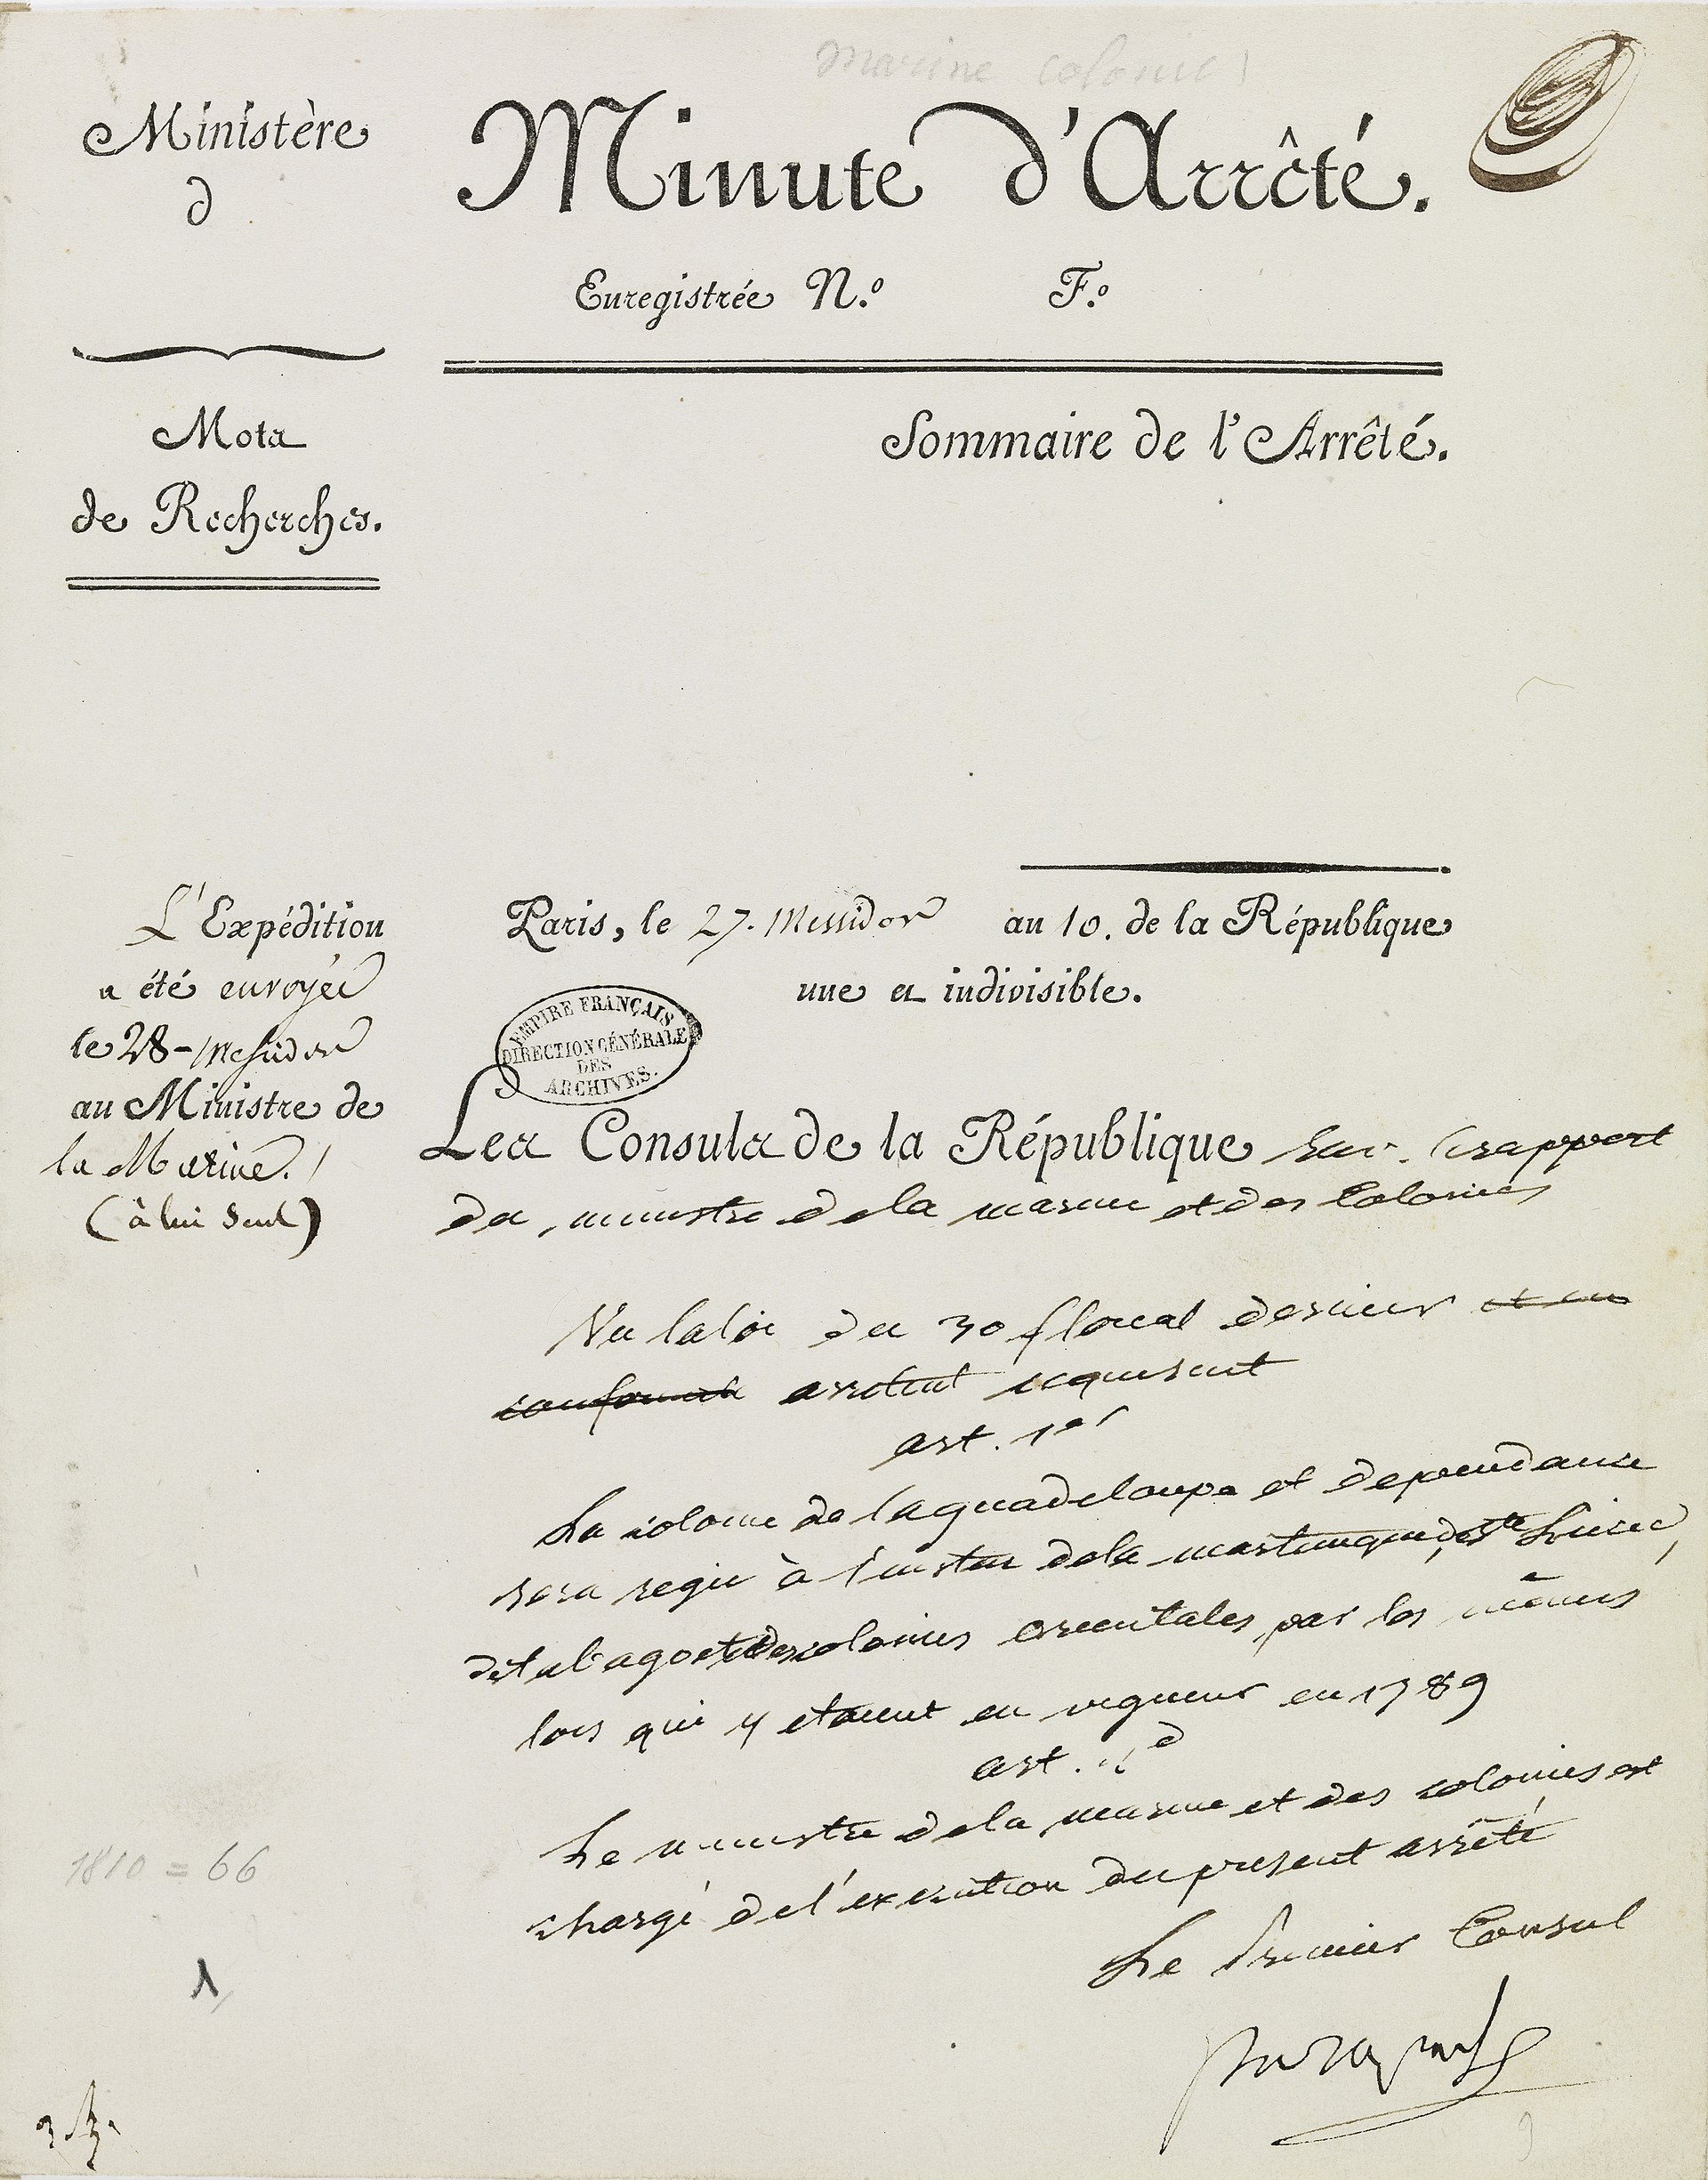 marine colonies
Ministère
d
Minute d'Arrêté.
Enregistrée N.º F.º
Mots
de Recherches.
Sommaire de l'Arrêté.
L'Expédition
a été envoyée
le 28 - Messidor
au Ministre de
la Marine.
(à lui seul)
Paris, le 27. Messidor an 10. de la République
une et indivisible.
EMPIRE FRANÇAIS
DIRECTION GÉNÉRALE
DES
ARCHIVES.
Les Consuls de la République sur le rapport
du ministre de la marine et des Colonies
Vu la loi du 30 floreal dernier et en
conformité arretent ce qui suit
art. 1er
La colonie de la guadeloupe et dependances
sera regie à l'instar de la martinique, de Ste Lucie,
de tabago et des colonies orientales, par les mêmes
lois qui y etaient en vigueur en 1789
art. 2d
Le ministre de la marine et des colonies est
chargé de l'execution du present arrêté
Le Premier Consul
1810 = 66
1
9